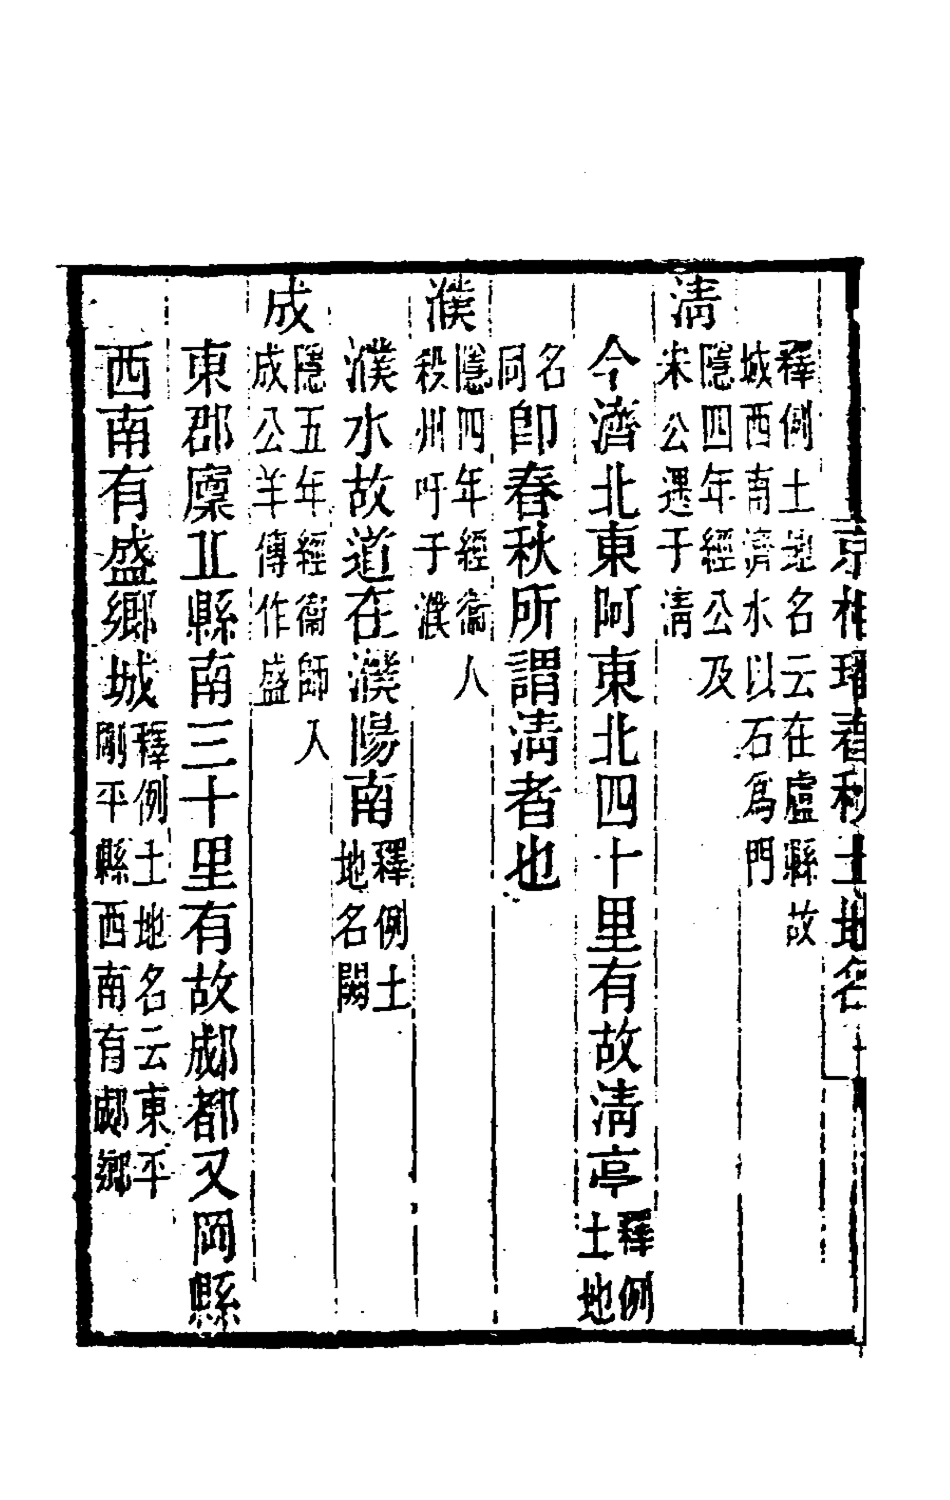 京相璠春秋土地名
釋例土地名云在盧縣故
城西南濟水以石爲門
淸隱四年經公及
宋公遇于淸
今濟北東阿東北四十里有故淸亭釋例
土地
名
同卽春秋所謂淸者也
濮隱四年經衞人
殺州吁于濮
濮水故道在濮陽南釋例土
地名闕
成隱五年經衞師入
成公羊傳作盛
東郡廩丘縣南三十里有故郕都又岡縣
西南有盛鄉城釋例土地名云東平
剛平縣西南有郕鄉